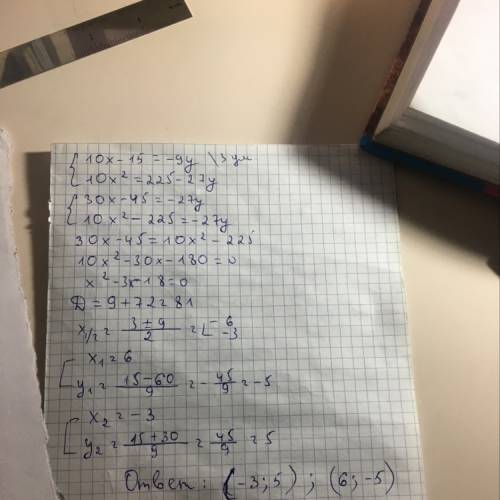 { 10x-15 = -9y \3 ум
{ 10x² = 225-27y
{ 30x-45 = -27y
{ 10x² - 225 = -27y
30x-45 = 10x² - 225
10x² -30x -180 = 0
x² -3x-18 = 0
D = 9+72 = 81
x1/2 = (3±9)/2 = [ 6 -3
[ x₁ = 6
[ y₁ = (15-60)/9 = -45/9 = -5
[ x₂ = -3
[ y₂ = (15+30)/9 = 45/9 = 5
Ответ: (-3; 5) ; (6; -5)